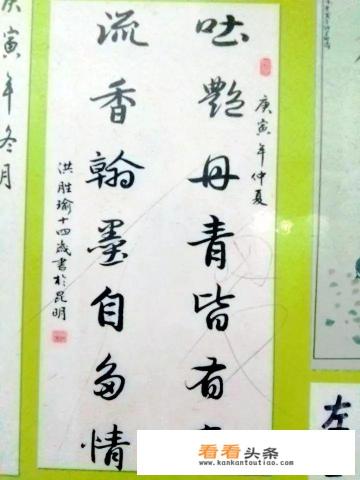 庚寅年仲夏
吐艷丹青皆有
流香翰墨自多情
洪胜瑜十四歲書於昆明
庚寅年冬月
左
看看头条
www.kankantoutiao.com